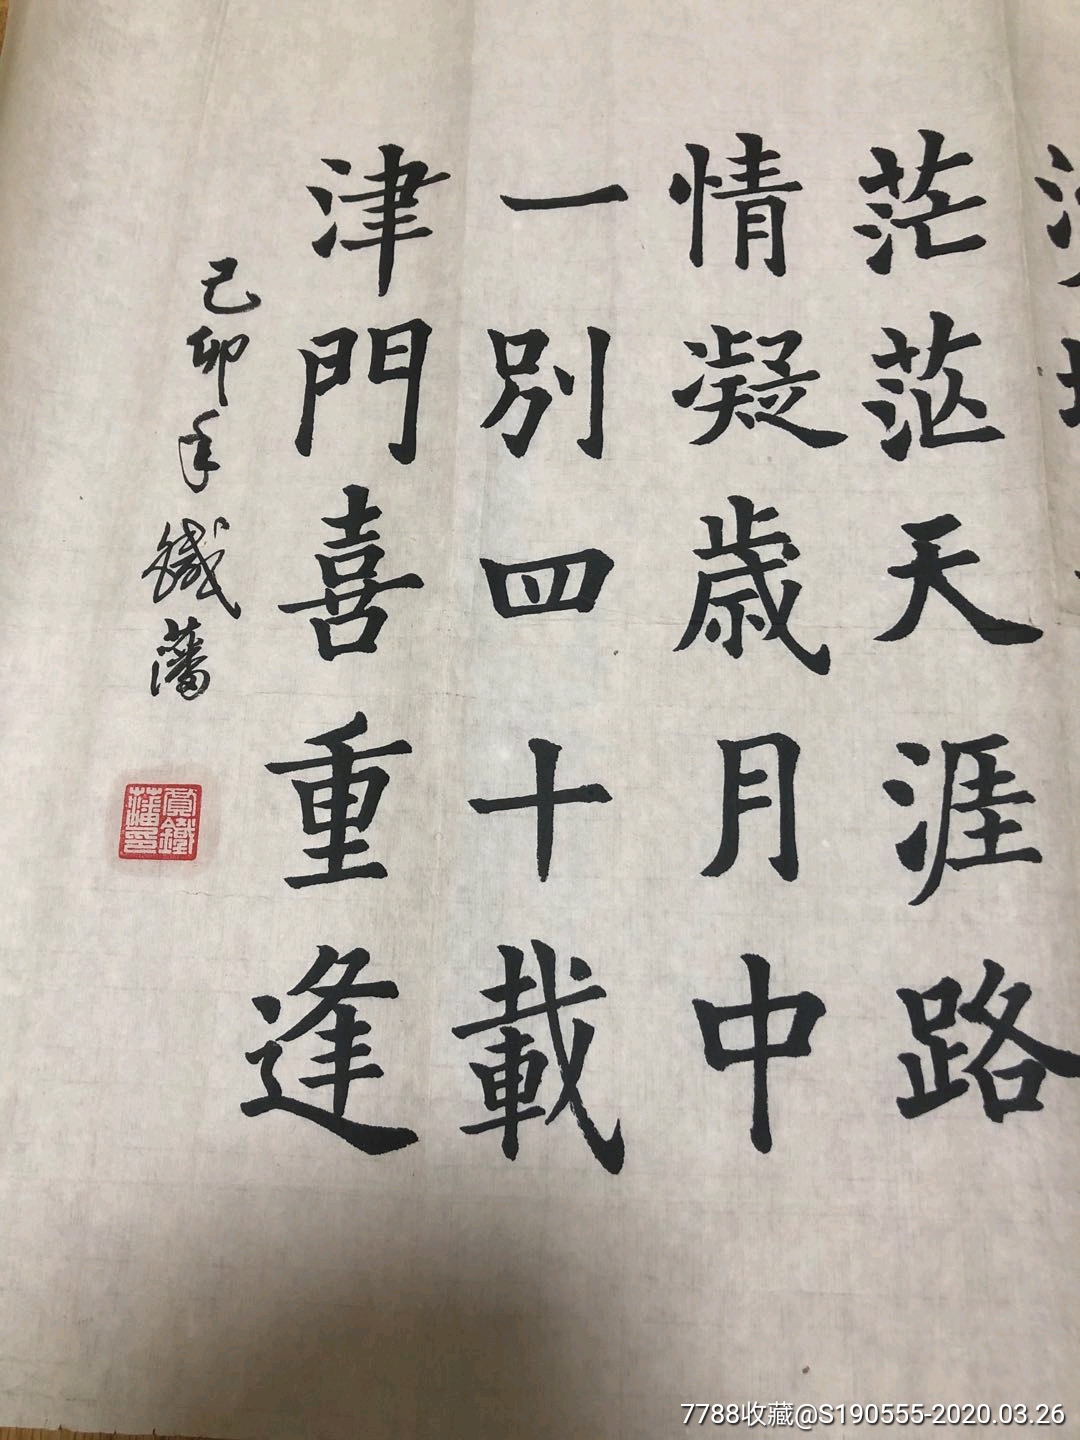 茫茫天涯路
情凝歲月中
一別四十載
津門喜重逢
己卯年鐵藩
7788收藏@S190555-2020.03.26